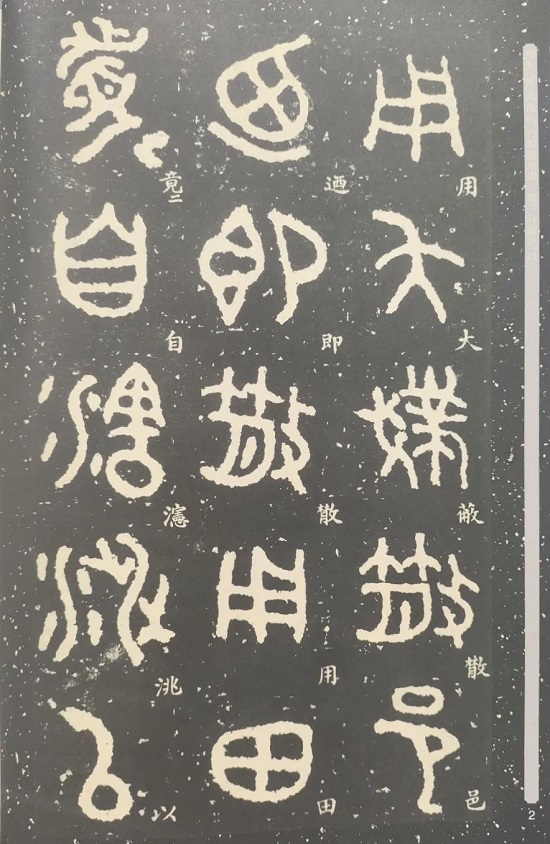 用大蔽散邑
迺即散用田
竟二自瀗洮以
2